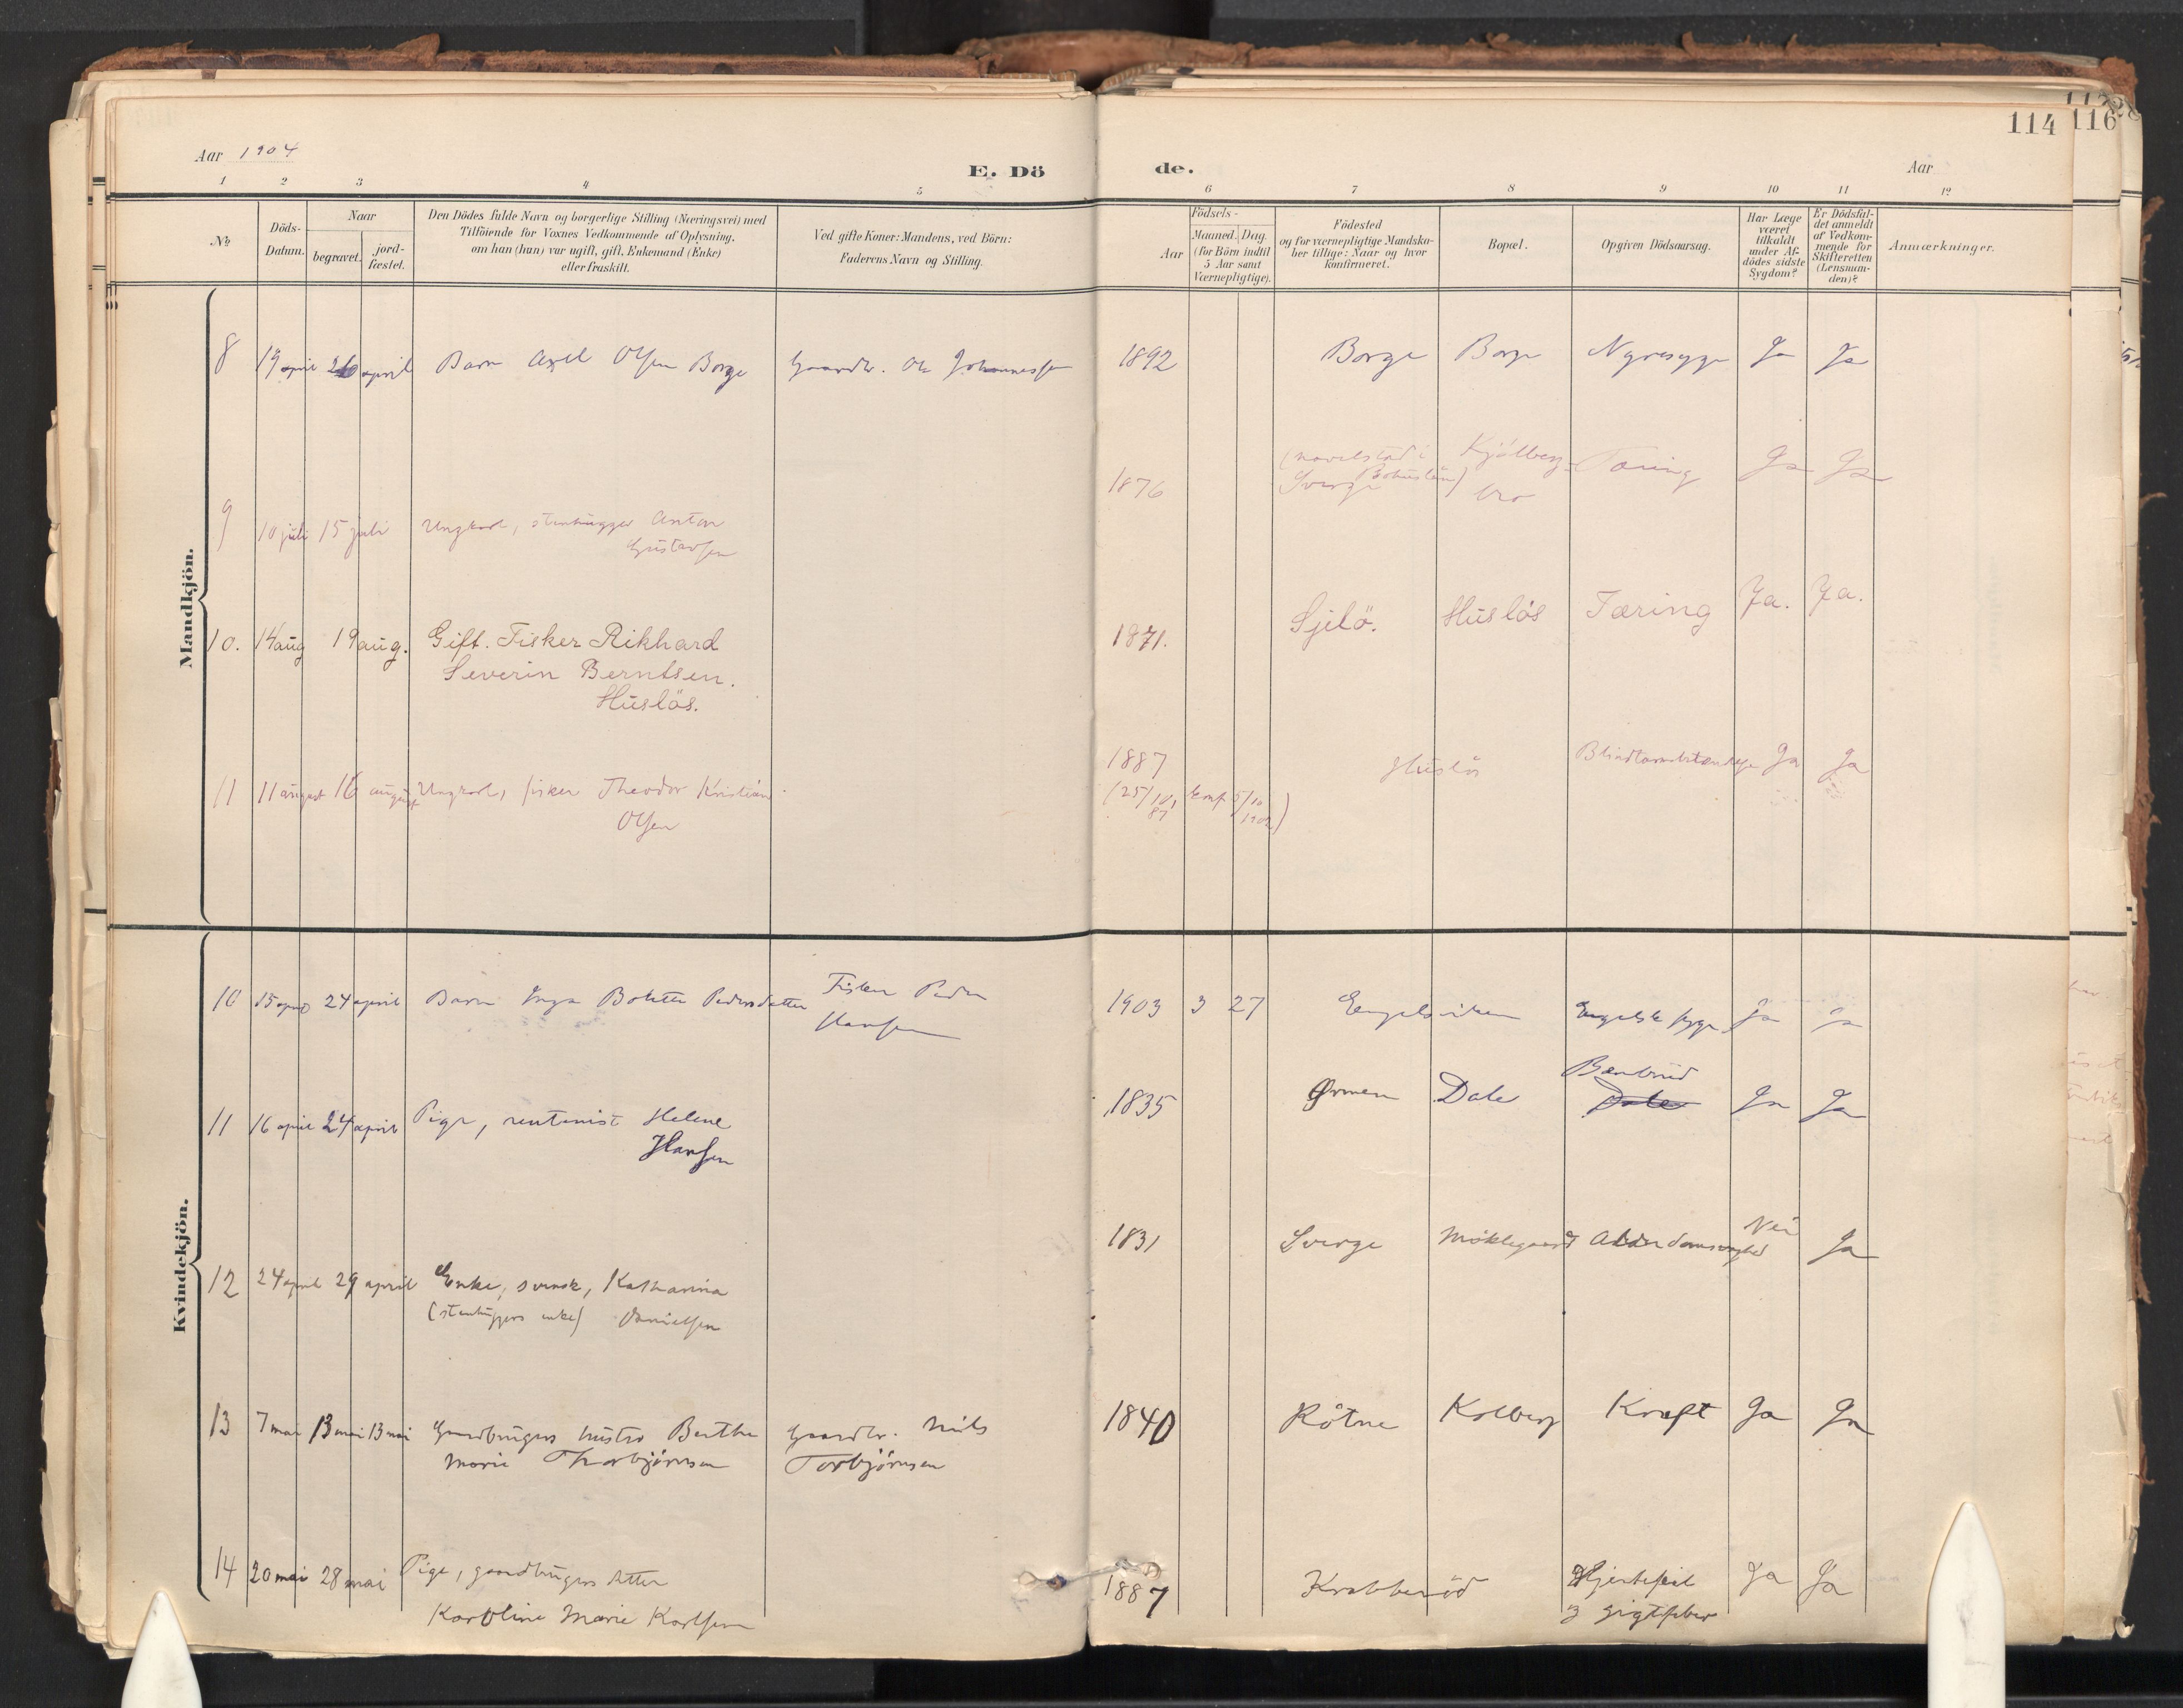 114
116
Aar 1904
E. Dö
de.
Aar
1 2 3 4 5 6 7 8 9 10 11 12
No
Döds-
Datum.
Naar
begravet.
jord-
fæstet.
Den Dödes fulde Navn og borgerlige Stilling (Næringsvei) med
Tilföiende for Voxnes Vedkommende af Oplysning.
om han (hun) var ugift, gift, Enkemand (Enke)
eller fraskilt.
Ved gifte Koner: Mandens, ved Börn:
Faderens Navn og Stilling.
Aar
Födsels-
Maaned. Dag.
(for Börn indtil
5 Aar samt
Værnepligtige).
Födested
og for værnepligtige Mandska-
ber tillige: Naar og hvor
konfirmeret.
Bopæl.
Opgiven Dödsaarsag.
Har Læge
været
tilkaldt
under Af-
dödes sidste
Sygdom?
Er Dödsfal-
det anmeldt
af Vedkom-
mende for
Skifteretten
(Lensman-
den)?
Anmærkninger.
Mandkjön.
8 19 april 20 april Barn Axel Olsen Borge Gaardbr. Ole Johannessen 1892 Borge Borge Nyresyge Ja Ja
9 10 juli 15 juli Ungkarl, stenhugger Anton
Gustavsen
1876
Sverge Bohuslän)
Kjölberg-
bro
Tæring Ja Ja
10. 14 aug 19 aug. Gift. Fisker Rikhard
Severin Berntsen.
Huslös.
1871. Sjelö. Huslös Tæring Ja. Ja.
11 11 august 16 august Ungkarl, fisker Theodor Kristian
Olsen
1887
(25/10 87, konf 5/10 1902)
Huslös Blindtarmbetændelse Ja Ja
Kvindekjön.
10 15 april 24 april Barn Inga Bolette Pedersdatter Fisker Peder
Hansen
1903 3 27 Engelsviken Engelsk syge Ja Ja
11 16 april 24 april Pige, rentenist Helene
Hansen
1835 Ørmen Dale Benbrud
Dale
Ja Ja
12 24 april 29 april Enke, svensk, Katharina
(stenhuggers enke) Danielsen
1831 Sverge Moklegaard Alderdomssvaghed Nei Ja
13 7 mai 13 mai 13 mai Gaardbrugers hustro Berthe
Marie Thorbjörnsen
Gaardbr. Nils
Torbjörnsen
1840 Rötne Kolberg Kræft Ja Ja
14 20 mai 28 mai Pige, gaardbrugers datter
Karoline Marie Karlsen
1887 Krabberöd Hjertefeil
og gigtfeber
Ja Ja